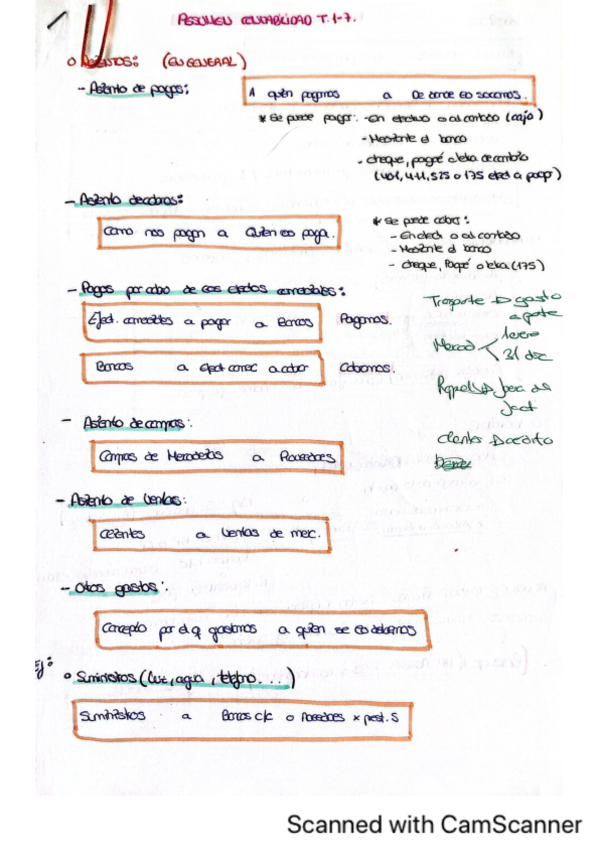 1
RESUMEN CONTABILIDAD T.1-7.
o ASIENTOS: (EN GENERAL)
- Asiento de pagos:
A quién pagamos a De donde lo sacamos.
* Se puede pagar: - En efectivo o al contado (caja)
- Mediante el banco
- cheque, pagaré o letra de cambio
(401, 411, 525 o 175 efect a pagar)
- Asiento de cobros:
Como nos pagan a Quien lo paga.
* Se puede cobrar:
- En efect o al contado
- Mediante el banco
- cheque, Pagaré o letra (175)
- Pagos por cobro de los efectos comerciales:
Efect. comerciales a pagar a Bancos Pagamos.
Bancos a efect comerc a cobrar Cobramos.
Transporte gasto
aparte
Mercad 1 enero
31 dic
- Asiento de compras:
Compras de Mercaderías a Proveedores
- Asiento de ventas:
Clientes a Ventas de mec.
- Otros gastos:
Concepto por el q gastamos a quien se lo debemos
Ej:
o Suministros (luz, agua, teléfono....)
Suministros a Bancos c/c o Acreedores x prest. S
Scanned with CamScanner